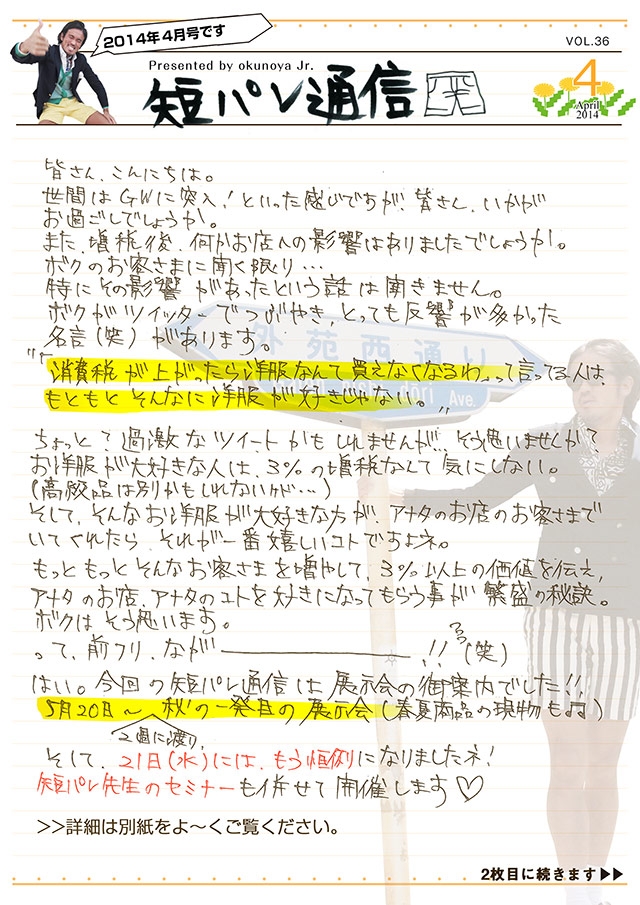 2014年4月号です
VOL.36
Presented by okunoya Jr.
短パン通信 笑
4
April
2014
皆さん、こんにちは。
世間はGWに突入!といった感じですが、皆さん、いかが
お過ごしでしょうか。
また、増税後、何かお店への影響はありましたでしょうか。
ボクのお客さまに聞く限り…
特にその影響があったという話は聞きません。
ボクがツイッターでつぶやき、とっても反響が多かった
名言(笑)があります。
"「消費税が上がったら洋服なんて買えなくなるわ」って言ってる人は、
もともとそんなに洋服が好きじゃない。"
ちょっと?過激なツイートかもしれませんが…そう思いませんか?
お洋服が大好きな人は、3%の増税なんて気にしない。
(高級品は別かもしれないけど…)
そして、そんなお洋服が大好きな方が、アナタのお店のお客さまで
いてくれたら、それが一番嬉しいコトですよネ。
もっともっとそんなお客さまを増やして、3%以上の価値を伝え、
アナタのお店、アナタのコトを好きになってもらう事が繁盛の秘訣。
ボクはそう思います。
って、前フリ、なが――――――!!(笑)
はい。今回の短パン通信は展示会の御案内でした!!
5月20日〜 秋の一発目の展示会(春夏商品の現物も♫)
2週に渡り、
そして、21日(水)には、もう恒例になりましたネ!
短パン先生のセミナーも併せて開催します♡
>>詳細は別紙をよ〜くご覧ください。
2枚目に続きます▶▶
外苑西通り
Ave.